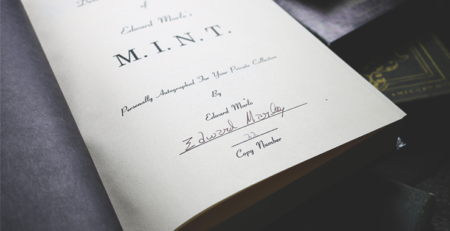 of
Edward Marlo's
M.I.N.T.
Personally Autographed For Your Private Collection
By
Edward Marlo
Edward Marlo
22
Copy Number